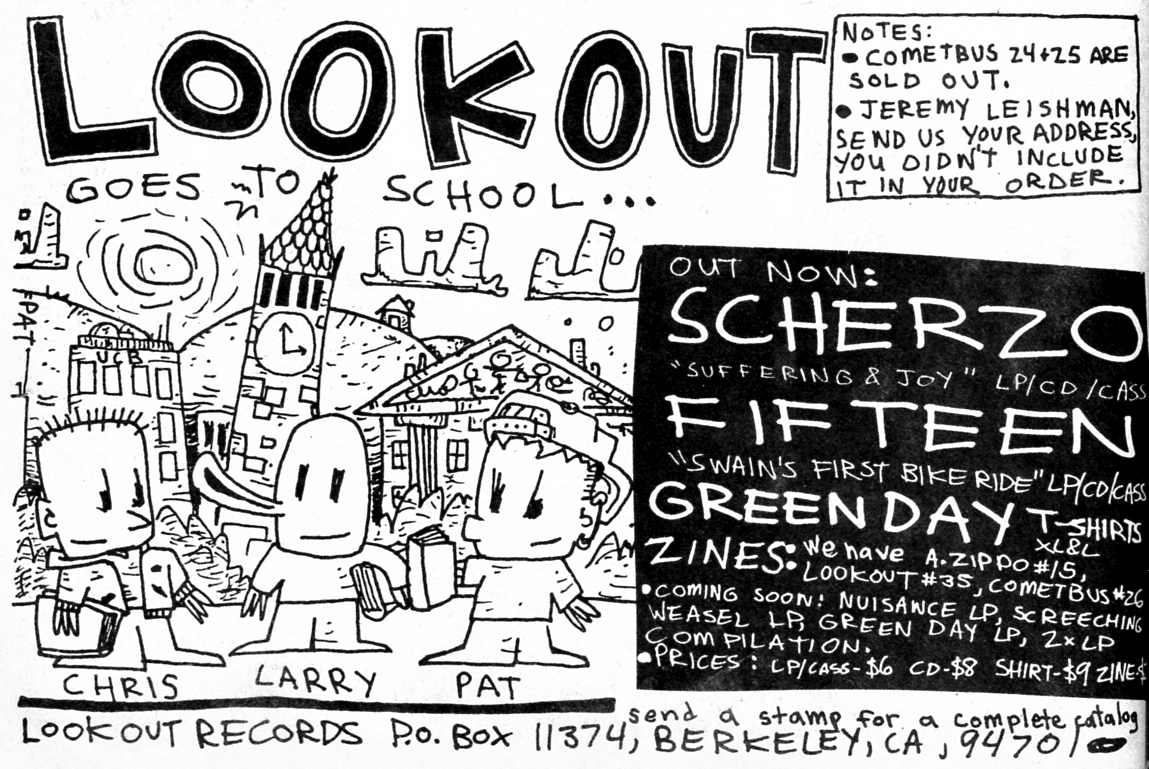 LOOKOUT
GOES TO SCHOOL...
NOTES:
• COMETBUS 24+25 ARE
SOLD OUT.
• JEREMY LEISHMAN,
SEND US YOUR ADDRESS,
YOU DIDN'T INCLUDE
IT IN YOUR ORDER.
PAT
UCB
OUT NOW:
SCHERZO
"SUFFERING & JOY" LP/CD/CASS
FIFTEEN
"SWAIN'S FIRST BIKE RIDE" LP/CD/CASS
GREEN DAY T-SHIRTS
XL&L
ZINES: We have A. ZIPPO #15,
LOOKOUT #35, COMETBUS #26
• COMING SOON! NUISANCE LP, SCREECHING
WEASEL LP, GREEN DAY LP, 2xLP
COMPILATION.
• PRICES: LP/CASS-$6 CD-$8 SHIRT-$9 ZINE-$
CHRIS LARRY PAT
send a stamp for a complete catalog
LOOKOUT RECORDS P.O. BOX 11374, BERKELEY, CA, 94701